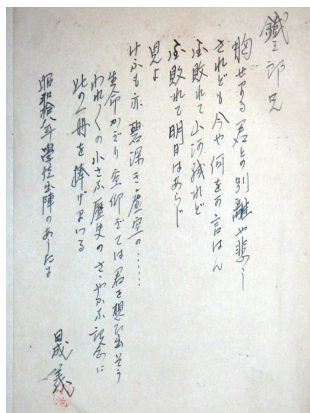 鐵三郎兄
胸せまる君との別離や悲し
されども今や何をか言はん
国敗れて山河残れど
国敗れて明日はあらじ
見よ
けふも亦碧深き虚空の……
生命かぎり空仰ぎては君を想ひ出さう
われ〱の小さな歴史のさゝやかな記念に
此の一冊を捧げまつる
昭和拾八年學徒出陣のあしたに